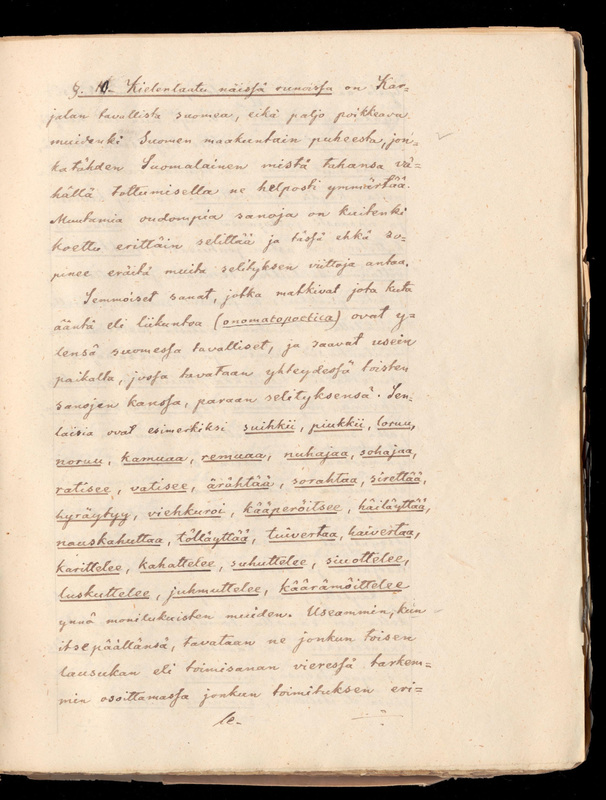 §. 10. Kielenlaatu näissä runoissa on Kar=
jalan tavallista suomea, eikä paljo poikkeava
muidenki Suomen maakuntain puheesta, jon-
ka tähden Suomalainen mistä tahansa vä=
hällä tottumisella ne helposti ymmärtää.
Muutamia oudompia sanoja on kuitenki
koettu erittäin selittää ja tässä ehkä so=
pinee eräitä muita selityksen viittoja antaa.
Semmoiset sanat, jotka matkivat jota kuta
ääntä eli liikuntoa (onomatopoetica) ovat y=
lensä suomessa tavalliset, ja saavat usein
paikalta, jossa tavataan yhteydessä toisten
sanojen kanssa, paraan selityksensä. Sen-
laisia ovat esimerkiksi suihkii, piukkii, loruu,
noruu, kamuaa, remuaa, nuhajaa, sohajaa,
ratisee, vatisee, ärähtää, sorahtaa, sirettää,
hyräytyy, viehkuroi, kääperöitsee, häiläyttää,
nauskahuttaa, tölläyttää, tuivertaa, haivertaa,
karittelee, kahattelee, suhuttelee, siuottelee,
luskuttelee, juhmuttelee, käärämöittelee
ynnä monilukuisten muiden. Useammin, kun
itsepäällänsä, tavataan ne jonkun toisen
lausukan eli toimisanan vieressä tarkem=
min osoittamassa jonkun toimituksen eri=
le-